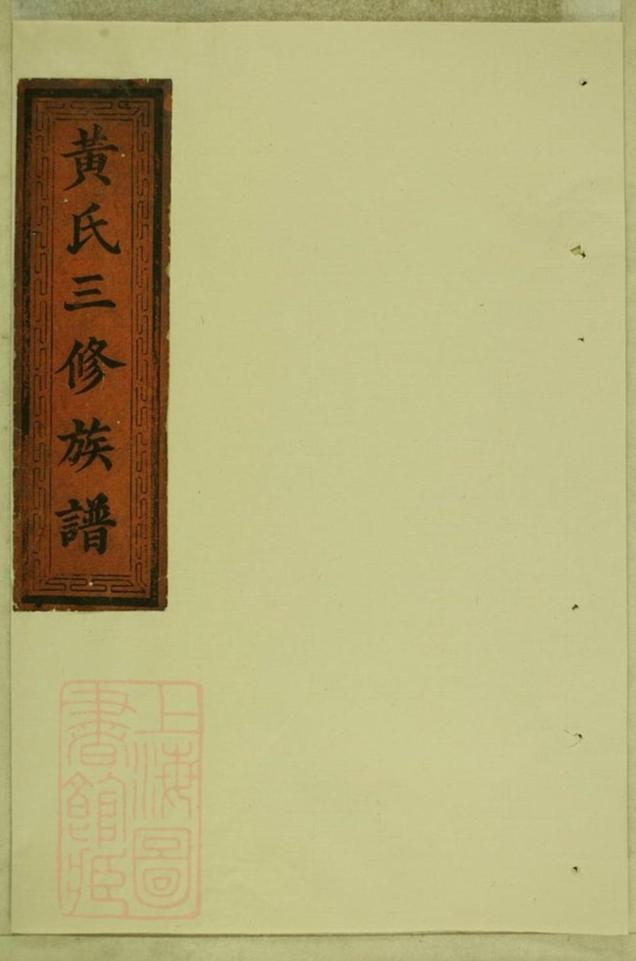 黃氏三修族譜
上海圖
書館藏